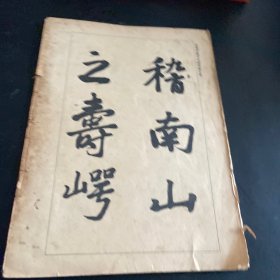 稽南山
之壽崿